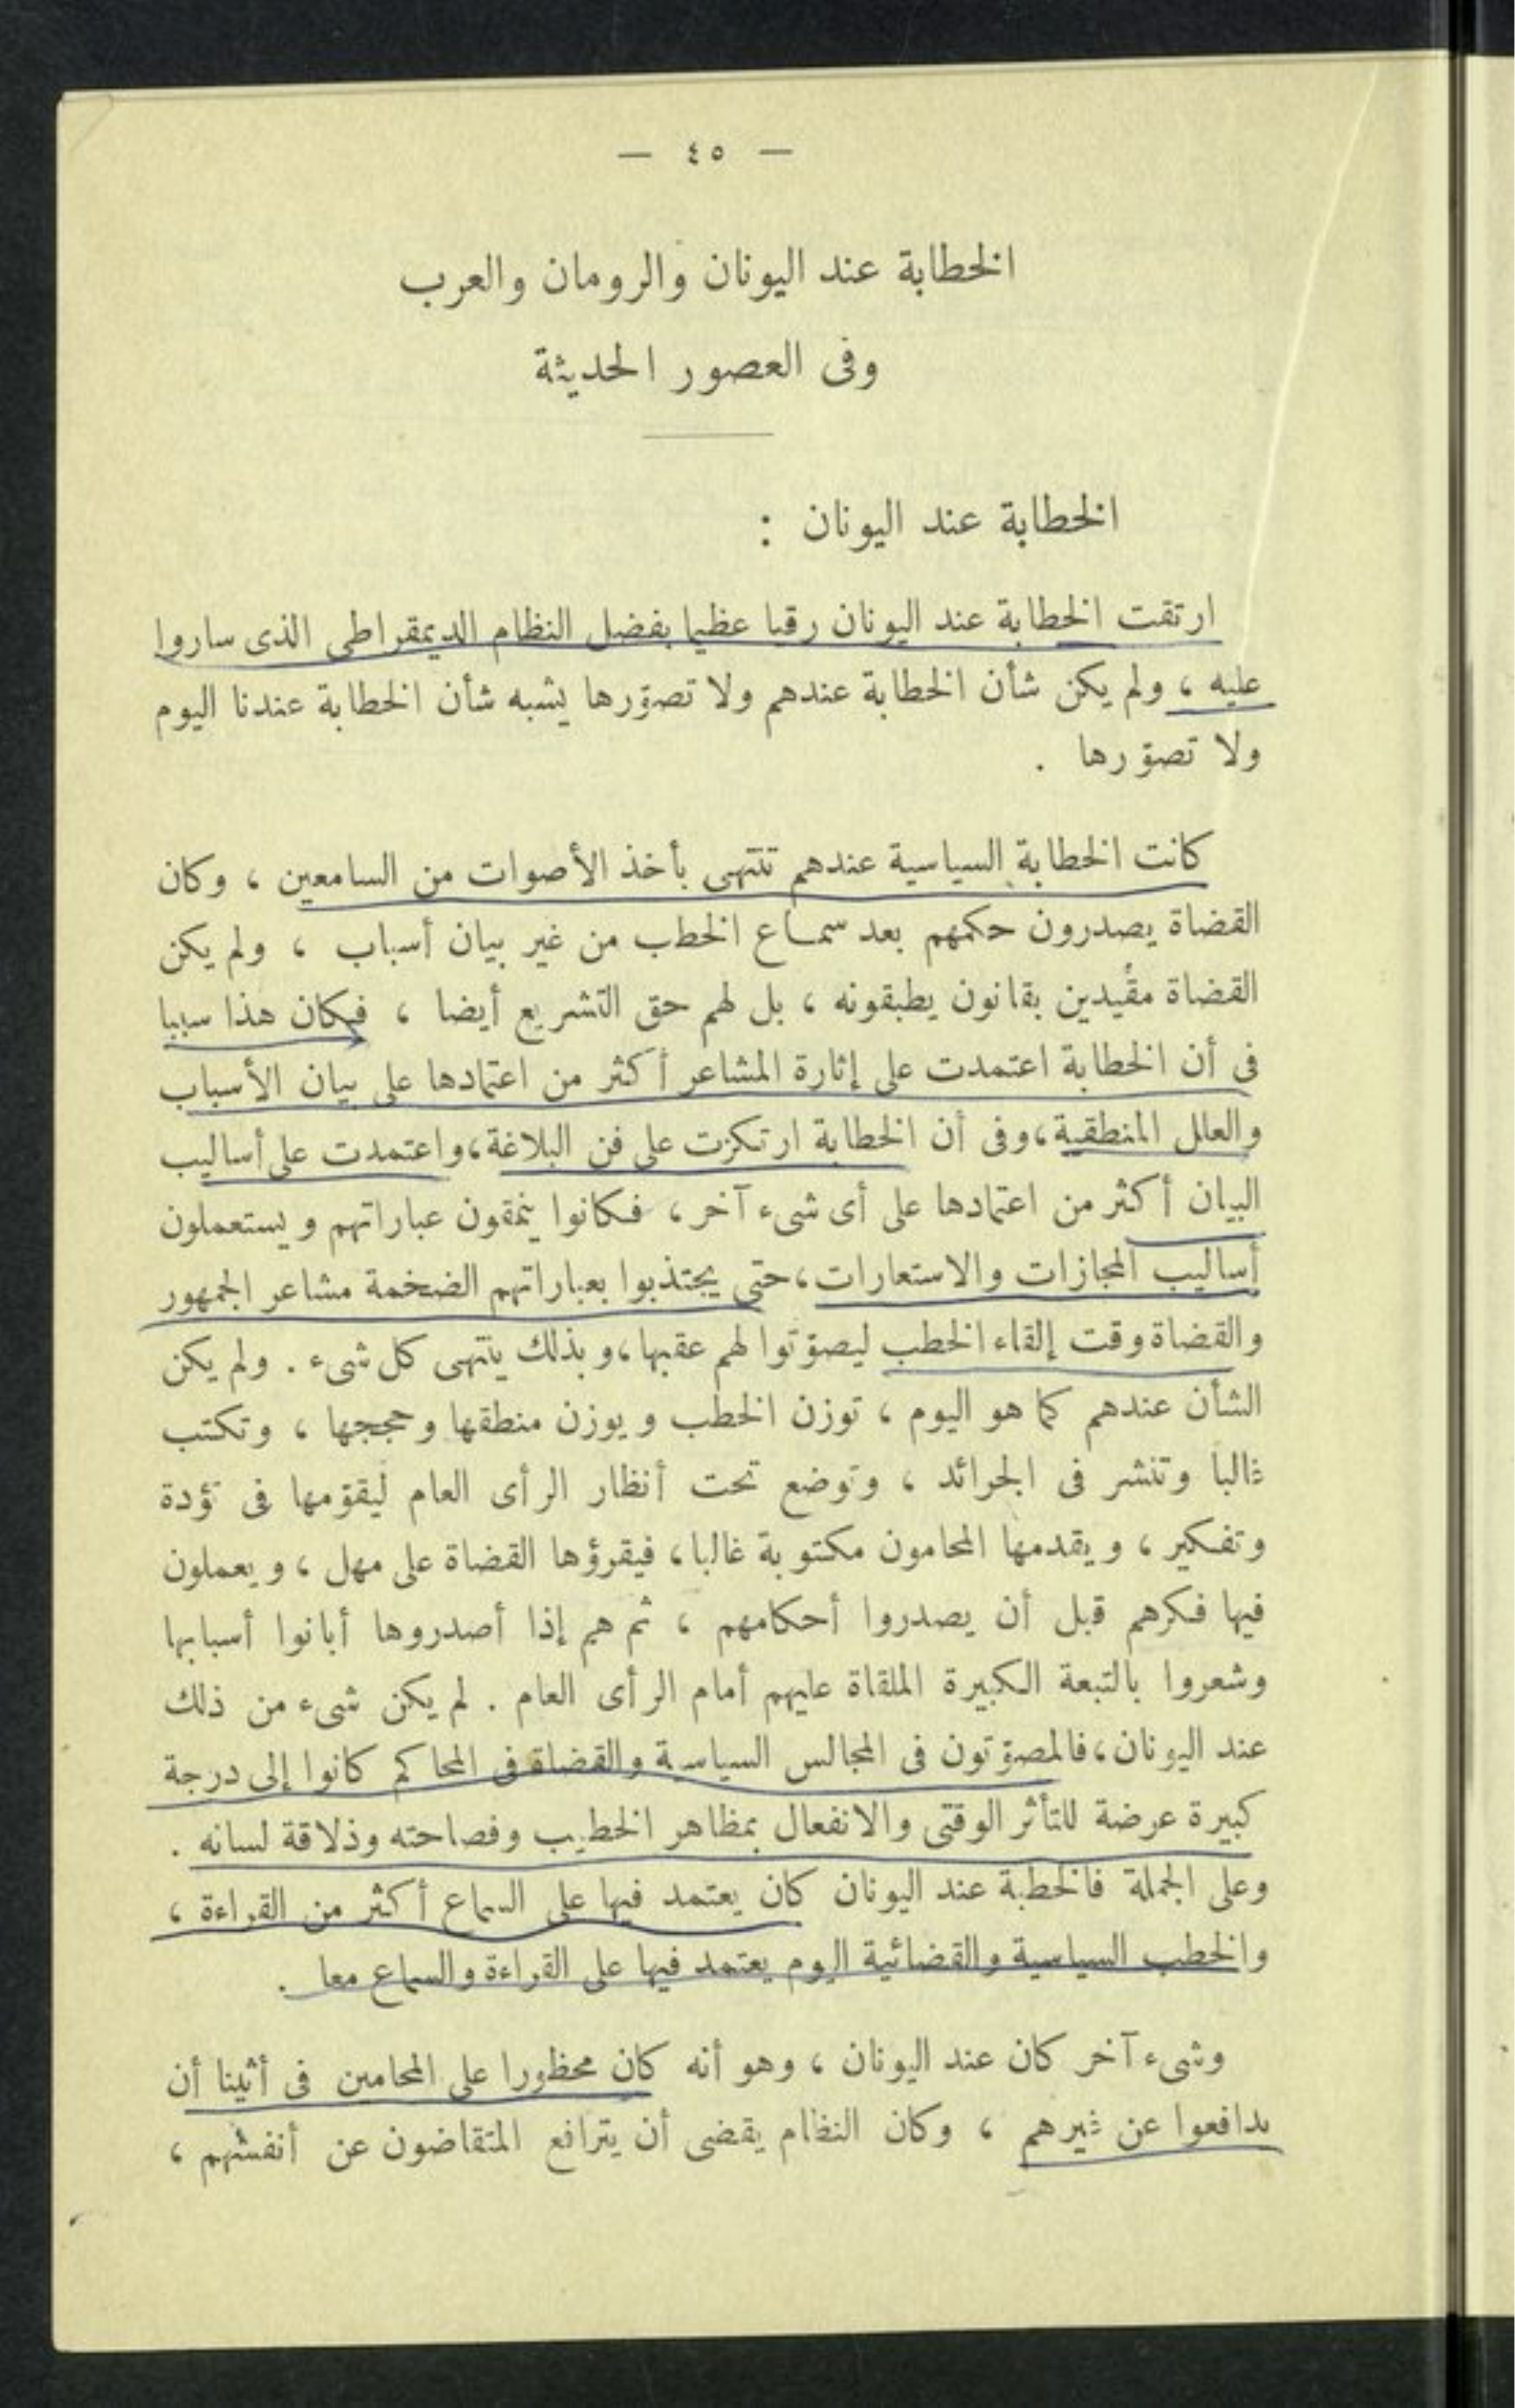 — ٤٥ —
الخطابة عند اليونان والرومان والعرب
وفى العصور الحديثة
الخطابة عند اليونان :
ارتقت الخطابة عند اليونان رقيا عظيما بفضل النظام الديمقراطى الذى ساروا
عليه ، ولم يكن شأن الخطابة عندهم ولا تصوّرها يشبه شأن الخطابة عندنا اليوم
ولا تصوّرها .
كانت الخطابة السياسية عندهم تنتهى بأخذ الأصوات من السامعين ، وكان
القضاة يصدرون حكمهم بعد سماع الخطب من غير بيان أسباب ، ولم يكن
القضاة مقيدين بقانون يطبقونه ، بل لهم حق التشريع أيضا ، فكان هذا سببا
فى أن الخطابة اعتمدت على إثارة المشاعر أكثر من اعتمادها على بيان الأسباب
والعلل المنطقية ، وفى أن الخطابة ارتكزت على فن البلاغة ، واعتمدت على أساليب
البيان أكثر من اعتمادها على أى شىء آخر ، فكانوا ينمقون عباراتهم ويستعملون
أساليب المجازات والاستعارات ، حتى يجتذبوا بعباراتهم الضخمة مشاعر الجمهور
والقضاة وقت إلقاء الخطب ليصوّتوا لهم عقبها ، وبذلك ينتهى كل شىء . ولم يكن
الشأن عندهم كما هو اليوم ، توزن الخطب ويوزن منطقها وحججها ، وتكتب
غالبا وتنشر فى الجرائد ، وتوضع تحت أنظار الرأى العام ليقوّمها فى تؤدة
وتفكير ، ويقدمها المحامون مكتوبة غالبا ، فيقرؤها القضاة على مهل ، ويعملون
فيها فكرهم قبل أن يصدروا أحكامهم ، ثم هم إذا أصدروها أبانوا أسبابها
وشعروا بالتبعة الكبيرة الملقاة عليهم أمام الرأى العام . لم يكن شىء من ذلك
عند اليونان ، فالمصوّتون فى المجالس السياسية والقضاة فى المحاكم كانوا إلى درجة
كبيرة عرضة للتأثر الوقتى والانفعال بمظاهر الخطيب وفصاحته وذلاقة لسانه .
وعلى الجملة فالخطبة عند اليونان كان يعتمد فيها على السماع أكثر من القراءة ،
والخطب السياسية والقضائية اليوم يعتمد فيها على القراءة والسماع معا .
وشىء آخر كان عند اليونان ، وهو أنه كان محظورا على المحامين فى أثينا أن
يدافعوا عن غيرهم ، وكان النظام يقضى أن يترافع المتقاضون عن أنفسهم ،